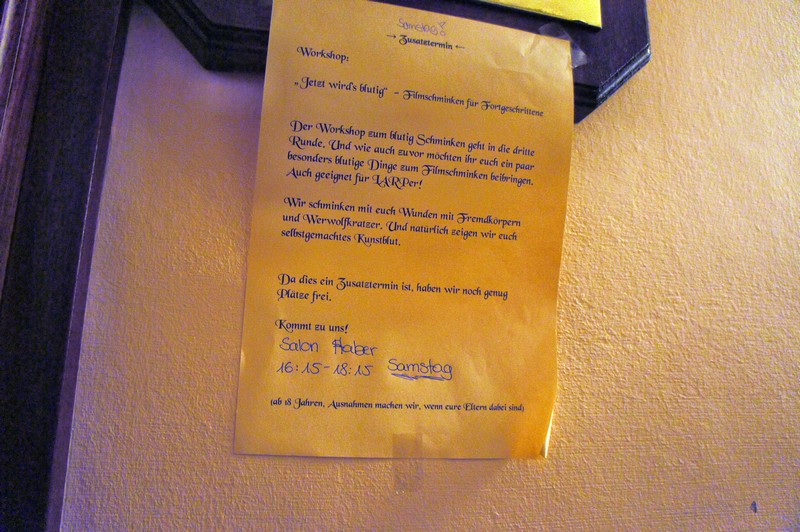 Samstag!
→ Zusatztermin ←
Workshop:
„Jetzt wird's blutig" - Filmschminken für Fortgeschrittene
Der Workshop zum blutig Schminken geht in die dritte
Runde. Und wie auch zuvor möchten ihr euch ein paar
besonders blutige Dinge zum Filmschminken beibringen.
Auch geeignet für LARPer!
Wir schminken mit euch Wunden mit Fremdkörpern
und Werwolfkratzer. Und natürlich zeigen wir euch
selbstgemachtes Kunstblut.
Da dies ein Zusatztermin ist, haben wir noch genug
Plätze frei.
Kommt zu uns!
Salon Haber
16:15-18:15 Samstag
(ab 18 Jahren, Ausnahmen machen wir, wenn eure Eltern dabei sind)